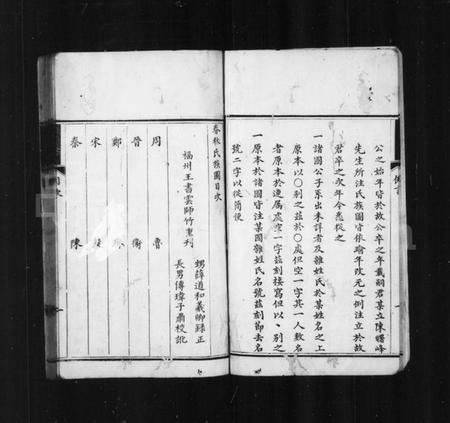 公之始年皆於故公卒之年戴嗣君某立陳曙峰
先生所注氏族圖皆依踰年改元之例注立於故
君卒之次年今悉從之
一諸國公子系出未詳者及雜姓氏於某姓名之上
原本以○別之茲於○處但空一字其一人數名
者原本於連屬處空一字茲刻接寫但以、別之
一原本於諸國皆注某國雜姓氏名號茲刻節去名
號二字以從簡便
春秋氏族圖目次
福州王書雲師竹重刊
甥薛道和羲卿錄正
長男傳瑋子肅校訛
周 魯
晉 衛
鄭
宋
秦 陳